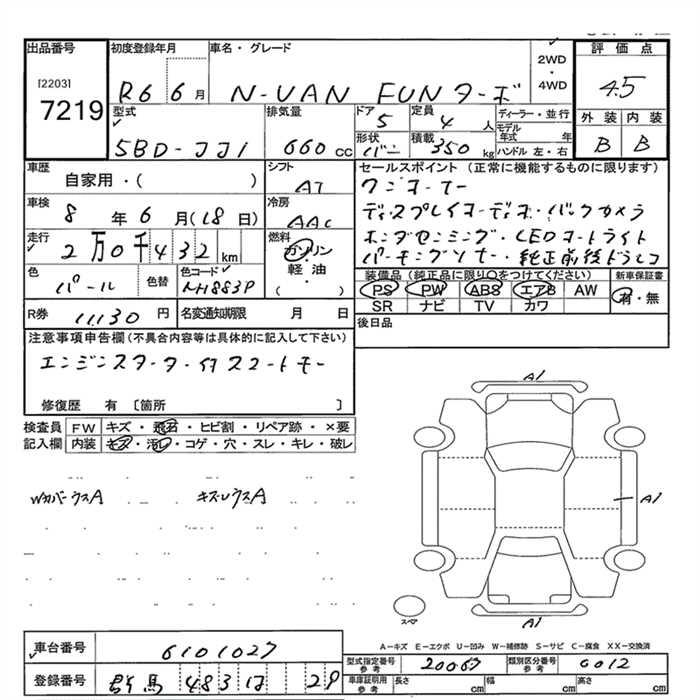 出品番号
[2203]
7219
初度登録年月
R6 6月
車名・グレード
N-VAN FUN ターボ
2WD
・
4WD
評価点
4.5
外装 内装
B B
型式
5BD-JJ1
排気量
660 cc
ドア
5
定員
4 人
形状
バン
積載
350 kg
ディーラー・並行
モデル年式 年
ハンドル 左・右
車歴
自家用・( )
シフト
AT
セールスポイント (正常に機能するものに限ります)
ワンオーナー
ディスプレイオーディオ・バックカメラ
ホンダセンシング・LEDオートライト
パーキングセンサー・純正前後ドラレコ
車検
8年6月(18日)
冷房
AAC
走行
2万0千432km
燃料
ガソリン
・
軽油
( ・ )
色
パール
色替
色コード
NH883P
装備品 (純正品に限り〇をつけてください)
新車保証書
PS PW ABS エアB AW
有・無
SR ナビ TV カワ
R券
11130 円
名変通知期限 月 日
後日品
注意事項申告欄 (不具合内容等は具体的に記入して下さい)
エンジンスターター付スマートキー
修復歴 有 〔箇所 〕
検査員
記入欄
FW キズ・飛石・ヒビ割・リペア跡・×要
内装 キズ・汚レ・コゲ・穴・スレ・キレ・破レ
WカバーウスA キズUウスA
A1
A1
A1
スペア
A-キズ E-エクボ U-凹み W-補修跡 S-サビ C-腐食 XX-交換済
車台番号
6101027
登録番号
群馬 483 ひ 29
型式指定番号
参考
20067
類別区分番号
参考
0012
車庫証明用
参考
長さ cm 幅 cm 高さ cm